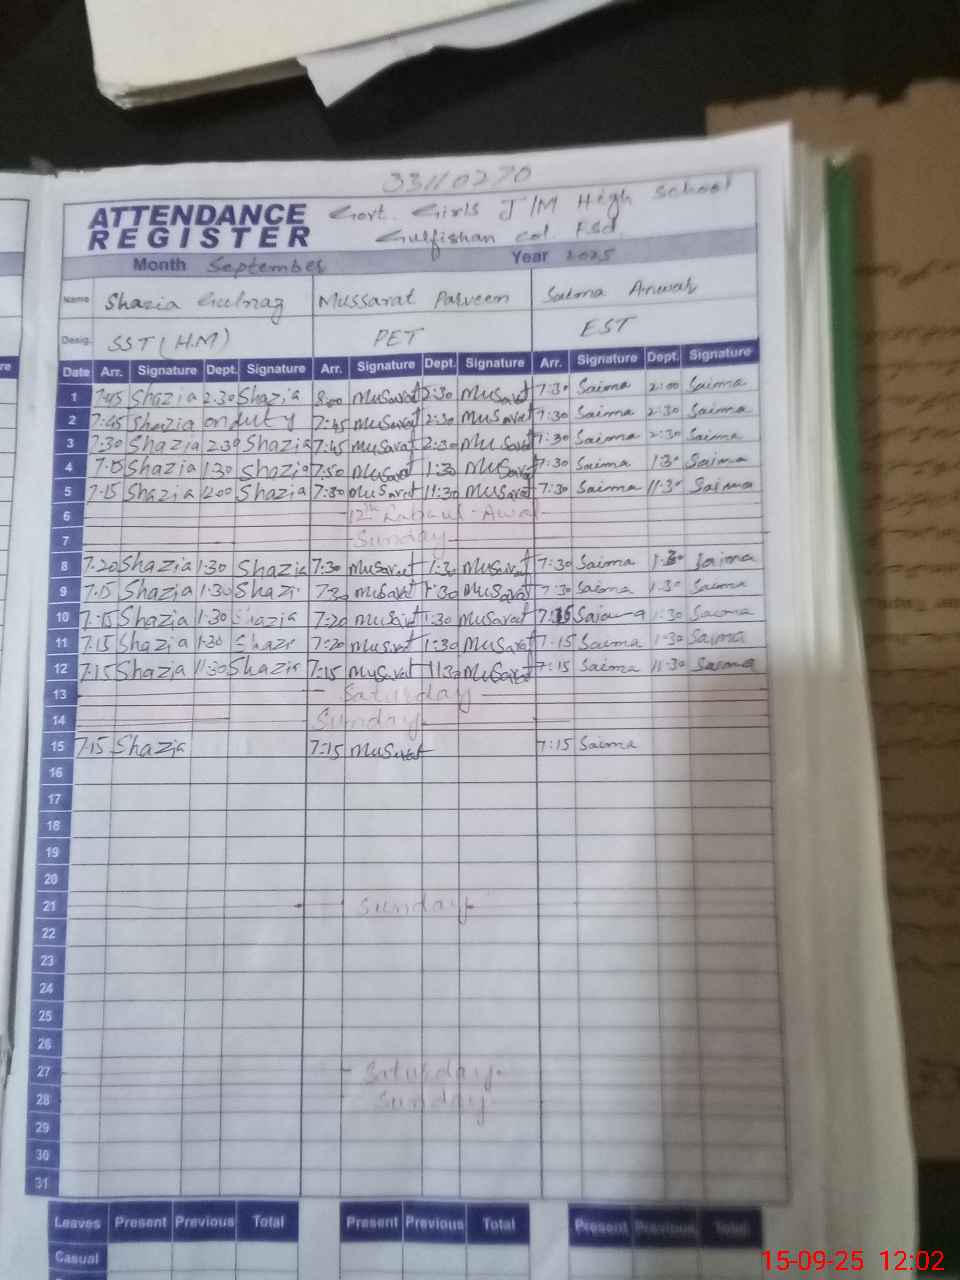 33110270
ATTENDANCE REGISTER
Govt. Girls J/M High School
Gulfishan col. Fsd.
Month September Year 2025
Name Shazia Gulnaz Mussarat Parveen Saima Anwar
Desig. SST (H.M) PET EST
Date Arr. Signature Dept. Signature Arr. Signature Dept. Signature Arr. Signature Dept. Signature
1 7:45 Shazia 2:30 Shazia 8:00 Musarat 2:30 Musarat 7:30 Saima 2:00 Saima
2 7:45 Shazia on duty 7:45 Musarat 2:30 Musarat 7:30 Saima 2:30 Saima
3 7:30 Shazia 2:30 Shazia 7:45 Musarat 2:30 Musarat 7:30 Saima 2:30 Saima
4 7:15 Shazia 1:30 Shazia 7:50 Musarat 1:30 Musarat 7:30 Saima 1:30 Saima
5 7:15 Shazia 1200 Shazia 7:30 Musarat 11:30 Musarat 7:30 Saima 11:30 Saima
6 12th Rabiul-Awal
7 Sunday
8 7:20 Shazia 1:30 Shazia 7:30 Musarat 1:30 Musarat 7:30 Saima 1:30 Saima
9 7:15 Shazia 1:30 Shazia 7:30 Musarat 1:30 Musarat 7:30 Saima 1:30 Saima
10 7:15 Shazia 1:30 Shazia 7:20 Musarat 1:30 Musarat 7:15 Saima 1:30 Saima
11 7:15 Shazia 1:30 Shazia 7:20 Musarat 1:30 Musarat 7:15 Saima 1:30 Saima
12 7:15 Shazia 11:30 Shazia 7:15 Musarat 11:30 Musarat 7:15 Saima 11:30 Saima
13 Saturday
14 Sunday
15 7:15 Shazia 7:15 Musarat 7:15 Saima
16
17
18
19
20
21 Sunday
22
23
24
25
26
27 Saturday
28 Sunday
29
30
31
Leaves Present Previous Total Present Previous Total Present Previous Total
Casual
15-09-25 12:02